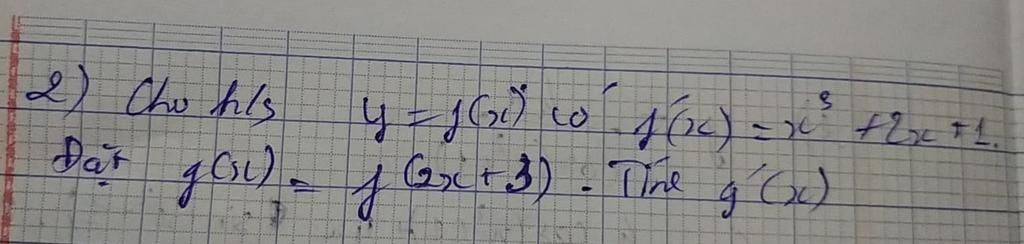 2) Cho h/s y = f(x) có f'(x) = x³ + 2x + 1.
Đặt g(x) = f(2x + 3). Tính g'(x)